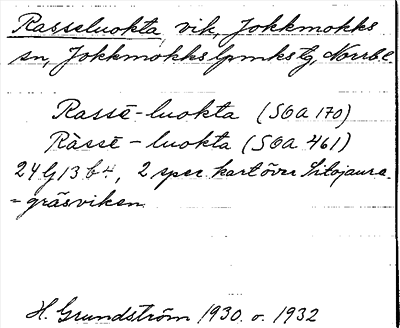 Rasseluokta, vik, Jokkmokks
sn, Jokkmokks lpmkstg, Norrb l.
Rassē-luokta (SOA 170)
Ràssē-luokta (SOA 461)
24 g 13 b 4, 2 spec. kart över Sitojaure.
=gräsviken
H. Grundström 1930. o. 1932